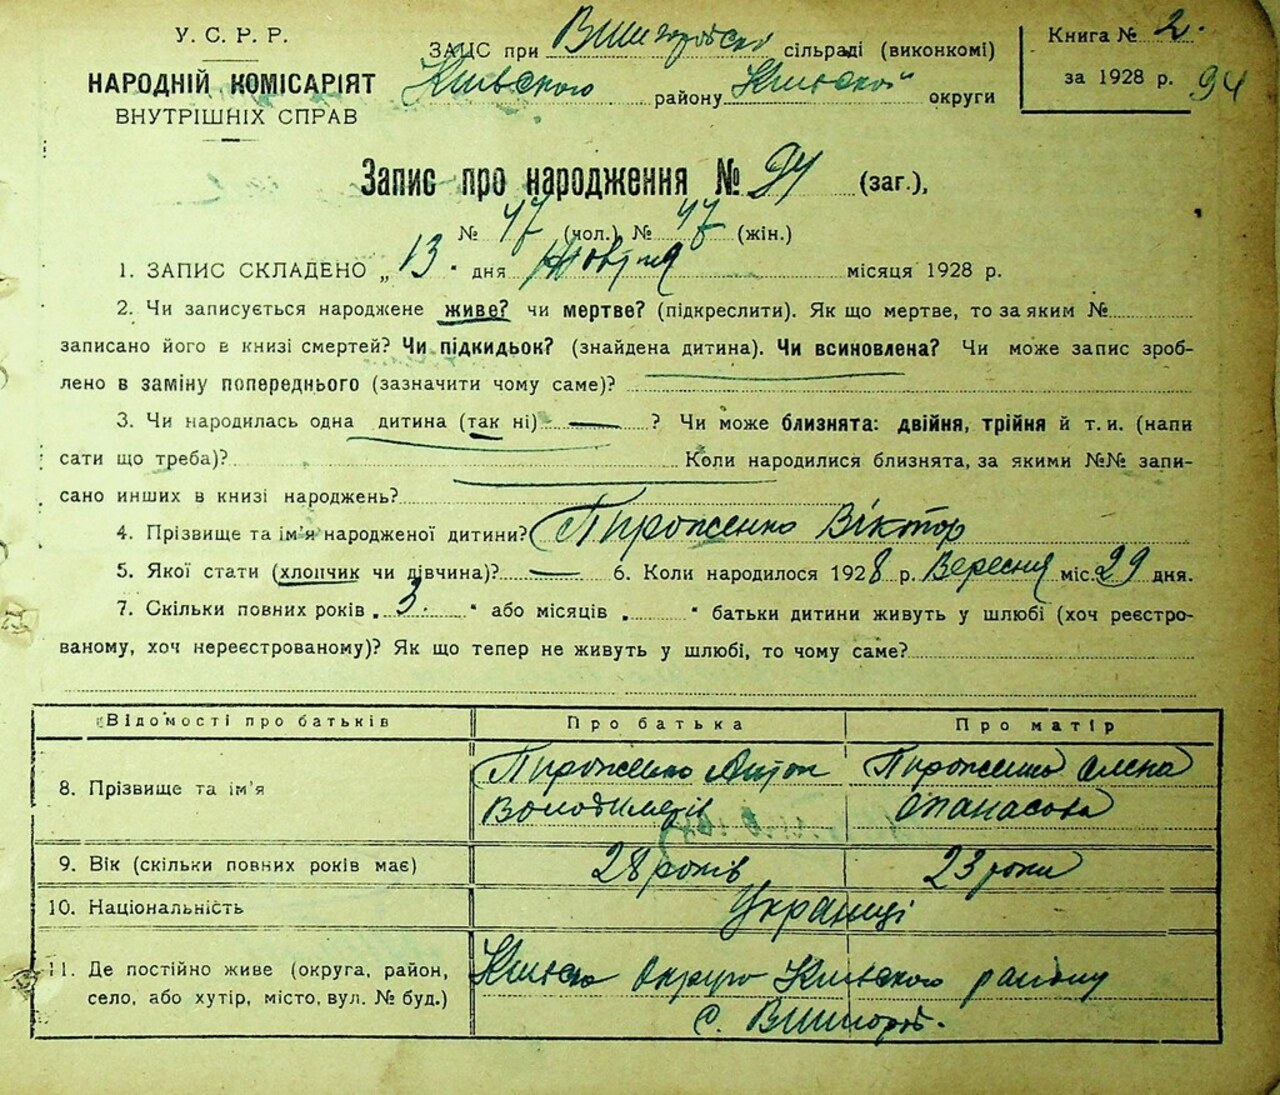 У. С. Р. Р.
НАРОДНІЙ КОМІСАРІЯТ
ВНУТРІШНІХ СПРАВ
ЗАГС при Вишгородскі сільраді (виконкомі)
Київского району Київскої округи
Книга № 2.
за 1928 р. 94
Запис про народження № 94 (заг.),
№ 47 (чол.) № 47 (жін.)
1. ЗАПИС СКЛАДЕНО „13" дня Жовтня місяця 1928 р.
2. Чи записується народжене живе? чи мертве? (підкреслити). Як що мертве, то за яким №
записано його в книзі смертей? Чи підкидьок? (знайдена дитина). Чи всиновлена? Чи може запис зроб-
лено в заміну попереднього (зазначити чому саме)?
3. Чи народилась одна дитина (так ні) — ? Чи може близнята: двійня, трійня й т. и. (напи
сати що треба)? Коли народилися близнята, за якими №№ запи-
сано инших в книзі народжень?
4. Прізвище та ім'я народженої дитини? Пироженко Віктор
5. Якої стати (хлопчик чи дівчина)? — 6. Коли народилося 1928 р. Вересня міс. 29 дня.
7. Скільки повних років „3." або місяців „ " батьки дитини живуть у шлюбі (хоч реєстро-
ваному, хоч нереєстрованому)? Як що тепер не живуть у шлюбі, то чому саме?
Відомості про батьків Про батька Про матір
8. Прізвище та ім'я Пироженко Антон Володимерів Пироженко Олена Опанасова
9. Вік (скільки повних років має) 28 років 23 роки
10. Національність Українці
11. Де постійно живе (округа, район, Київска округа Київского району
село, або хутір, місто, вул. № буд.) с. Вишгород.